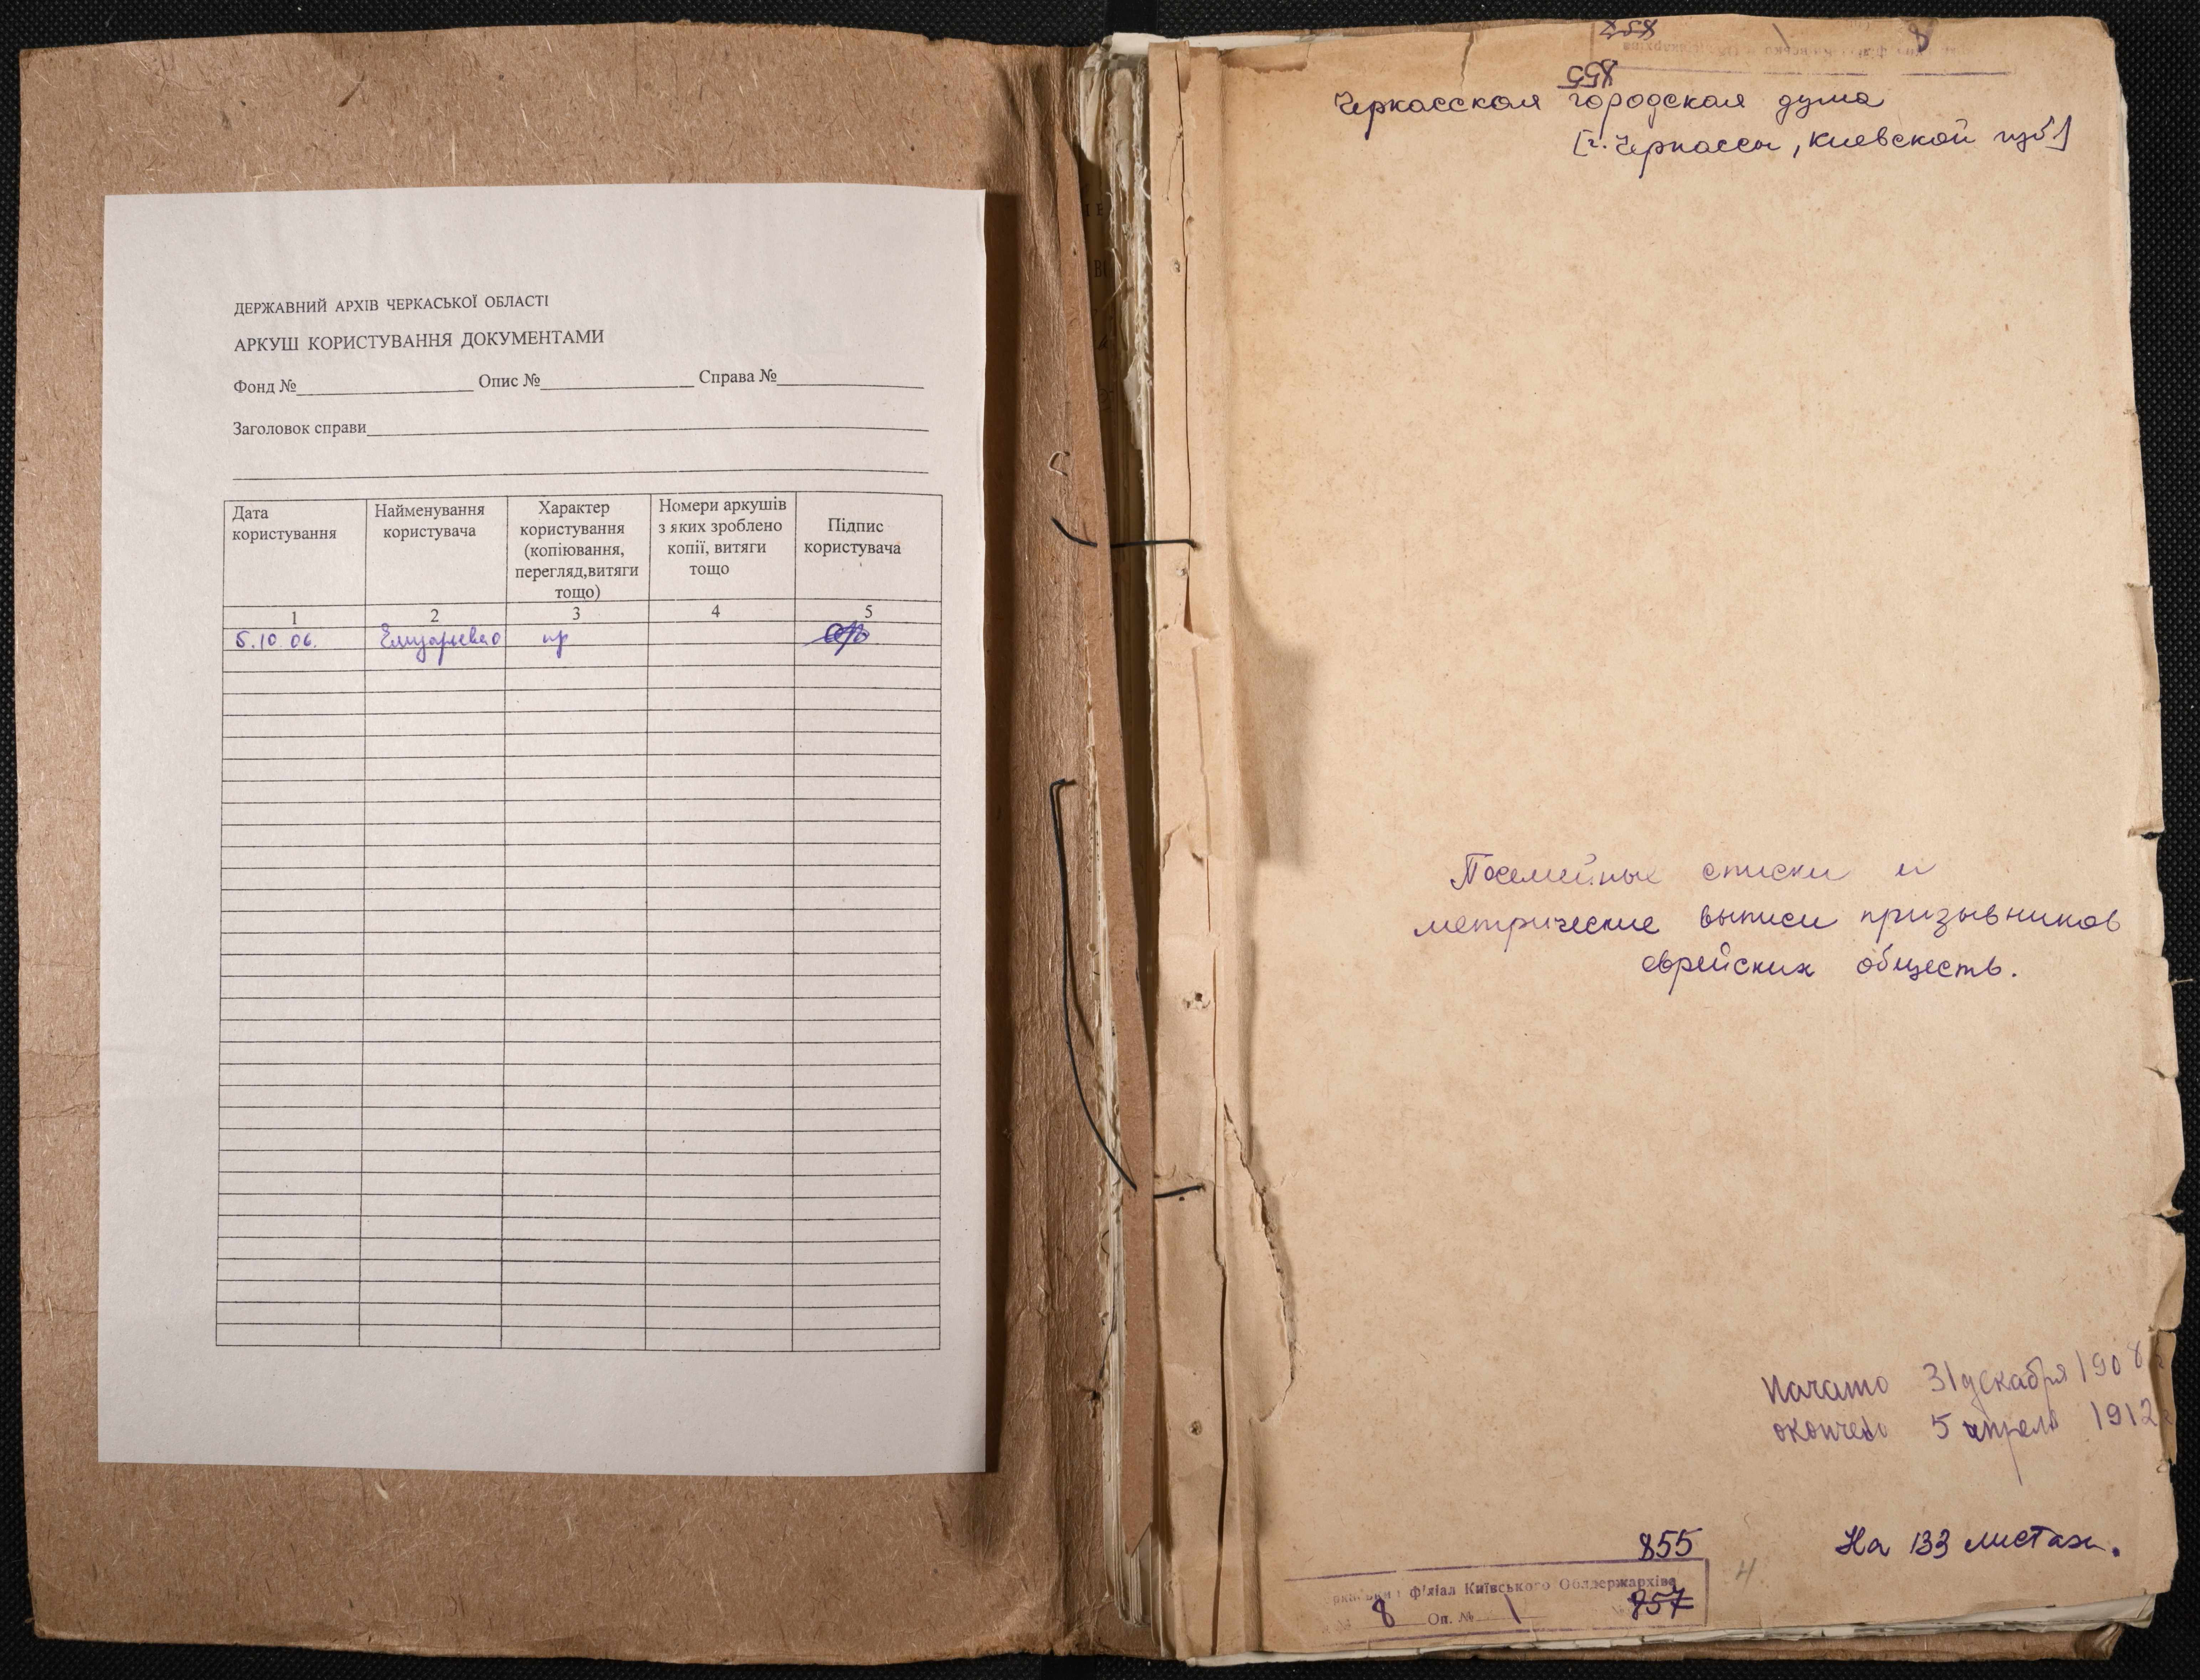 ДЕРЖАВНИЙ АРХІВ ЧЕРКАСЬКОЇ ОБЛАСТІ
АРКУШ КОРИСТУВАННЯ ДОКУМЕНТАМИ
Фонд № Опис № Справа №
Заголовок справи
Дата користування
Найменування користувача
Характер користування (копіювання, перегляд,витяги тощо)
Номери аркушів з яких зроблено копії, витяги тощо
Підпис користувача
1 2 3 4 5
5.10 06. пр
855
Черкасская городская дума
[г. Черкассы, Киевской губ]
Посемейные списки и
метрические выписи призывников
еврейских обществ.
Начато 31 декабря 1908
окончено 5 апреля 1912
855 На 133 листах.
філіал Київського Облдержархіва
8 Оп. № 1 857